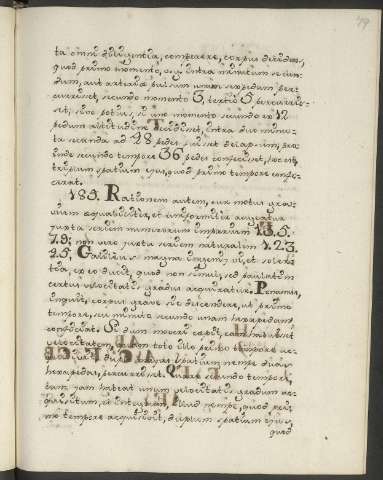 79
ta omni diligentia, comperere, corpus decidens,
quod primo momento, seu intra minutum secun-
dum, aut arteriæ pulsum unam sexpedam per-
curreret, secundo momento 3, tertio 5 percurris-
set, sive potius, si uno momento secundo ex 12
pedum altitudine decideret, intra duo minu-
ta secunda ad 28 pedes fuisset delapsum, pro-
inde secundo tempore 36 pedes confecisset, hoc est,
triplum spatium ejus, quod primo tempore confe-
cerat.
189. Rationem autem, cur motus gra-
vium æquabiliter, et uniformiter augeatur
juxta seriem numerorum imparium 1.3.5.
7.9; non vero juxta seriem naturalem 1.2.3.
4.5, Galilæus magna ingenii vi, et soler-
tia ex eo ducit, quod non simul, sed paulatim
certus velocitatis gradus acquiratur. Ponamus,
inquit, corpus grave sic descendere, ut primo
tempore, seu minuto secundo unam hexapedam
conficiat. Sed dum moveri cœpit, nam habebat
velocitatem, nam toto illo primo tempore
duplum spatium nempe duas
hexapedas, percurreret. Quare secundo tempore,
cum jam habeat unum velocitatis gradum ac-
quisitum, et integrum, illud nempe, quod pri-
mo tempore acquisivit, duplum spatium ejus,
quod